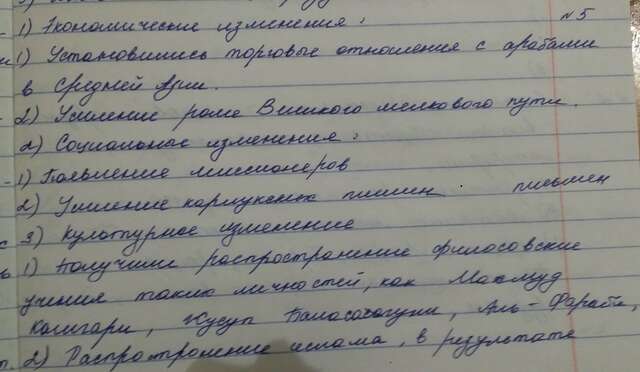 1) Экономические изменения:
№5
1) Установились торговые отношения с арабами
в Средней Азии.
2) Усиление роли Великого шелкового пути.
2) Социальные изменения:
1) Появление миссионеров
2) Усиление карлукских племен племен
3) Культурное изменение
1) Получили распространение философские
учения таких личностей, как Махмуд
Кашгари, Жусуп Баласагуни, Аль-Фараби,
2) Распространение ислама, в результате